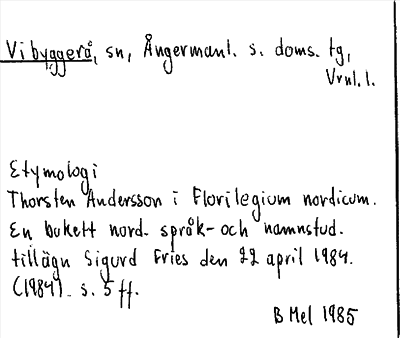 Vibyggerå, sn, Ångermanl. s. doms. tg,
Vrnl. l.
Etymologi
Thorsten Andersson i Florilegium nordicum.
En bukett nord. språk- och namnstud.
tillägn Sigurd Fries den 22 april 1984.
(1984). s. 5 ff.
B Mel 1985